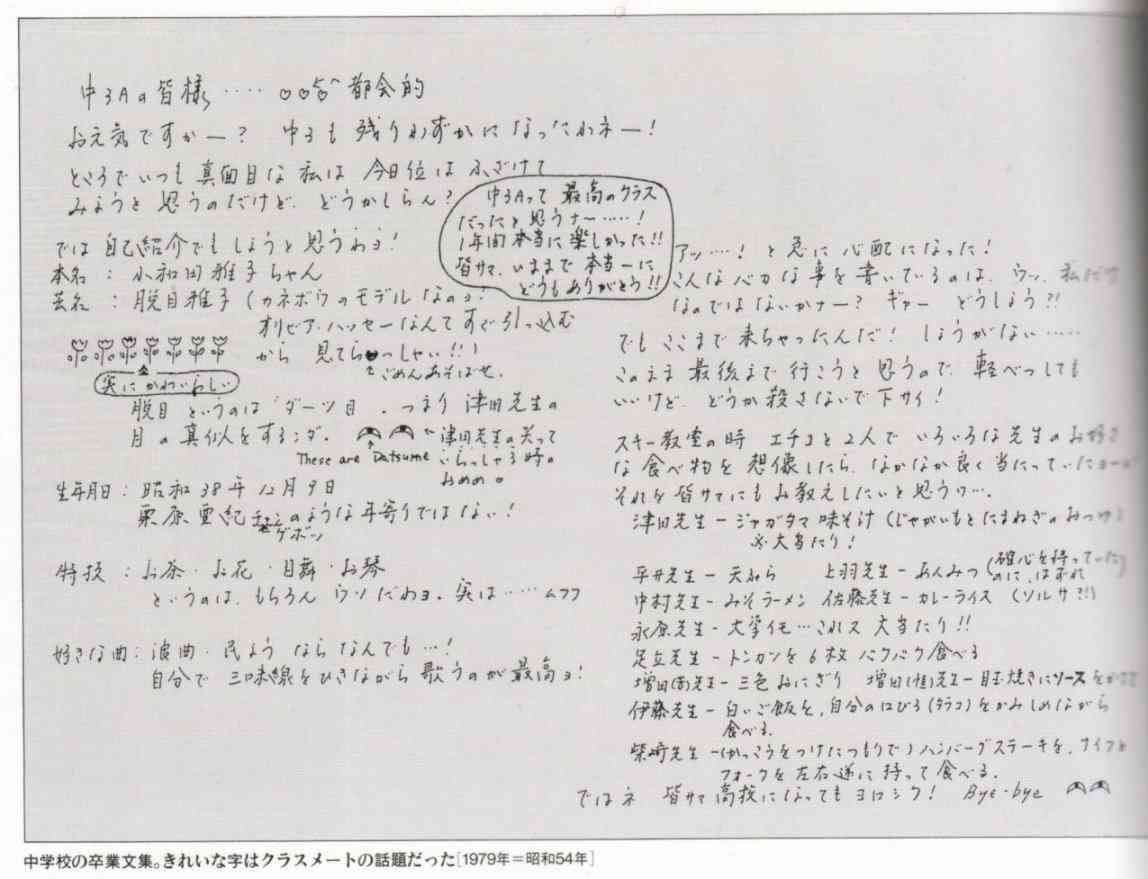 中3Aの皆様‥‥ 都会的
お元気ですかー? 中3も残りわずかになったわネー!
ところでいつも真面目な私は今日位はふざけて
みようと思うのだけど、どうかしらん?
中3Aって最高のクラス
だったと思うナー……!
1年間本当に楽しかった!!
皆サマ、いままで本当ーに
どうもありがとう!!
では自己紹介でもしようと思うわヨ!
本名:小和田雅子ちゃん
芸名:脱目雅子(カネボウのモデルなのヨ!
オリビア・ハッセーなんてすぐ引っ込む
から 見てらっしゃい!!)
ごめんあそばせ。
実にかわいらしい
脱目というのは"ダーツ目"、つまり津田先生の
目の真似をするンダ。
津田先生の笑って
いらっしゃる時の
おめめ。
These are Datsume
生年月日:昭和38年12月9日
栗原亜紀チャンのような年寄りではない!
ゲボーン
特技:お茶・お花・日舞・お琴
というのは、もちろんウソだわヨ。実は……ムフフ
好きな曲:浪曲・民ようならなんでも…!
自分で三味線をひきながら歌うのが最高ヨ!
アッ……! と急に心配になった!
こんなバカな事を書いているのは、ウッ、私だけ
なのではないかナー? ギャー どうしよう?!
でもここまで来ちゃったんだ! しょうがない……
このまま最後まで行こうと思うので、軽べつしても
いいけど、どうか殺さないで下サイ!
スキー教室の時 エチョと2人でいろいろな先生のお好き
な食べ物を想像したら、なかなか良く当たっていたヨー
それを皆サマにもお教えしたいと思うワ…。
津田先生ージャガタマ味そ汁(じゃがいもとたまねぎのみつけ)
※大当たり!
平井先生ー天ぷら 上羽先生ーあんみつ(確心を持っていた
のに、はずれ)
中村先生ーみそラーメン 佐藤先生ーカレーライス(ソルサ?!)
永原先生ー大学イモ…これス大当たり!!
足立先生ートンカツを6枚パクパク食べる
増田先生ー三色おにぎり 増田先生ー目玉焼きにソースを
伊藤先生ー白いご飯を、自分の口びる(タラコ)をかみしめながら
食べる。
柴崎先生ー(かっこうをつけたつもりで)ハンバーグステーキを、ナイフと
フォークを左右逆に持って食べる。
ではネ 皆サマ高校になってもヨロシク! Bye-bye
中学校の卒業文集。きれいな字はクラスメートの話題だった[1979年=昭和54年]